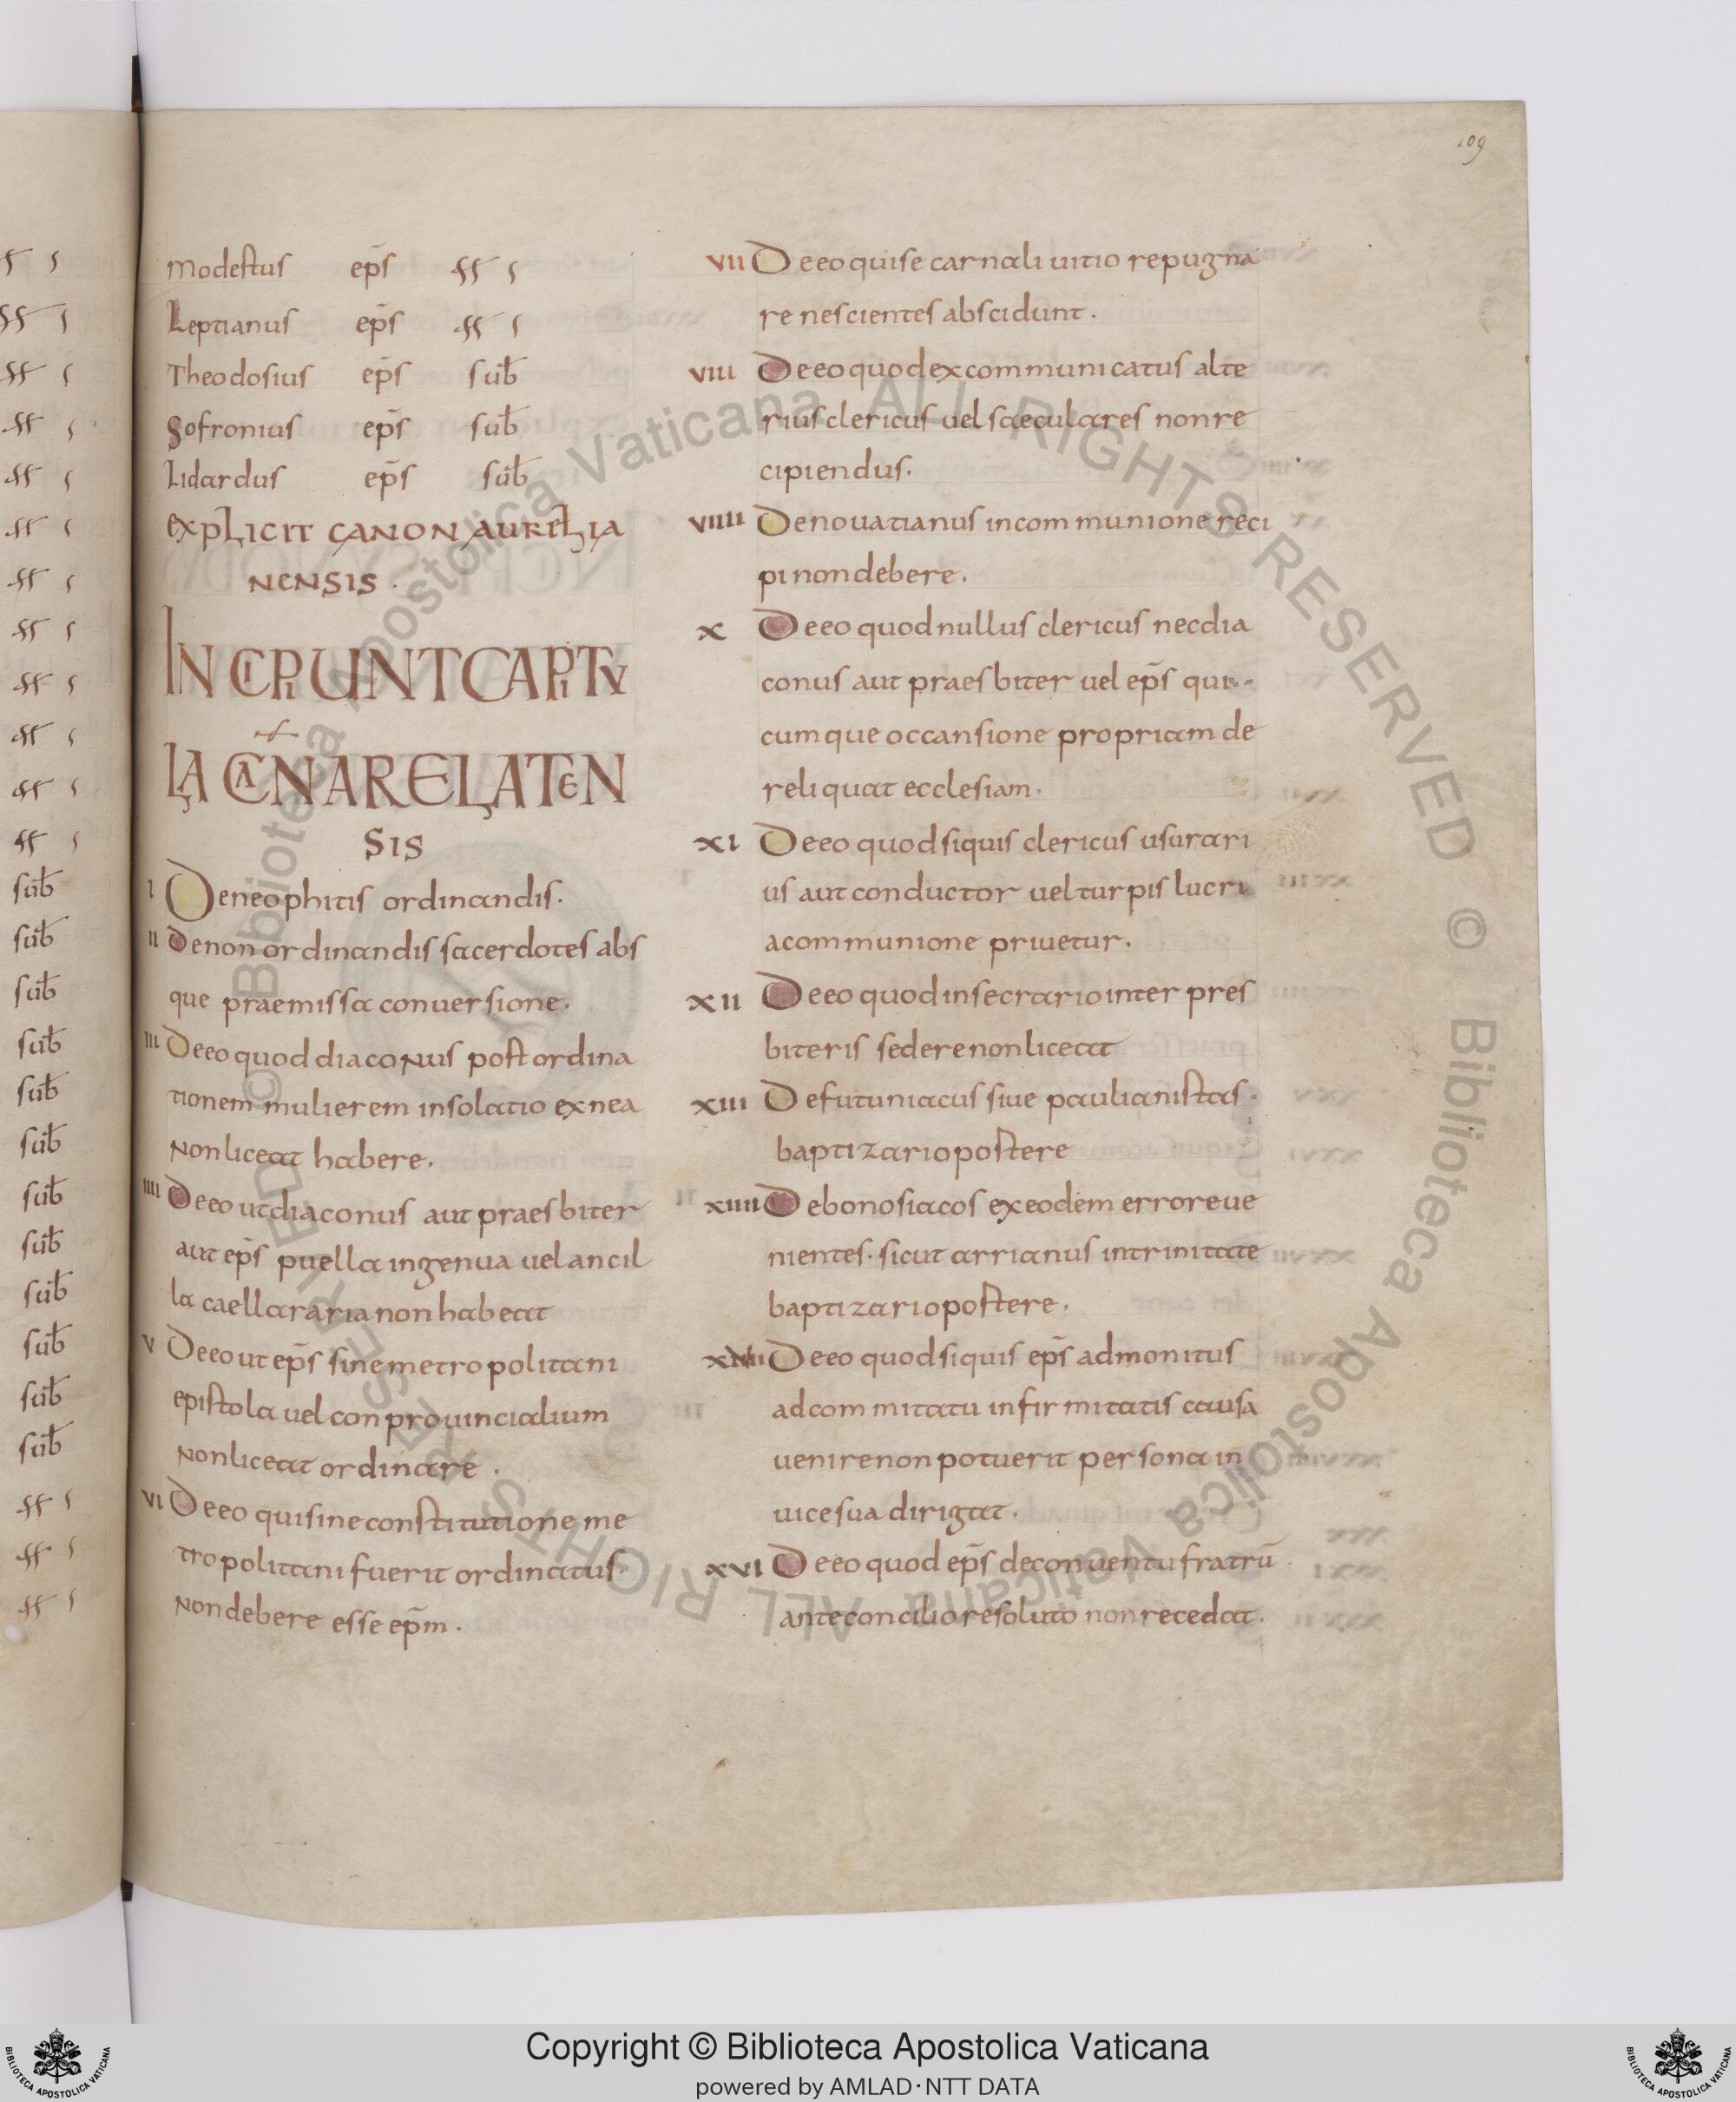 109
modestus ep̄s ss s
Leptianus ep̄s ss s
Theodosius ep̄s sub̄
Sofronius ep̄s sub̄
Lidardus ep̄s sub̄
explicit canon aurelia
nensis.
INCIPIUNT CAPITU
LA CAN ARELATEN
SIS
I De neophitis ordinandis.
II de non ordinandis sacerdotes abs
que praemissa conversione.
III De eo quod diaconus post ordina
tionem mulierem in solatio ex nea
non liceat habere.
IIII De eo ut diaconus aut praesbiter
aut ep̄s puella ingenua vel ancil
la caellararia non habeat
V De eo ut ep̄s sine metropolitani
epistola vel conprouincialium
non liceat ordinare.
VI De eo qui sine constitutione me
tropolitani fuerit ordinatus.
non debere esse ep̄m.
VII De eo qui se carnali uitio repugna
re nescientes abscidunt.
VIII De eo quod excommunicatus alte
rius clericus uel saeculares non re
cipiendus.
VIIII De nouatianus in communione reci
pi non debere.
X De eo quod nullus clericus nec dia
conus aut praesbiter uel ep̄s qui
cumque occansione propriam de
reliquat ecclesiam.
XI De eo quod siquis clericus usurari
us aut conductor uel turpis lucri
a communione priuetur.
XII De eo quod in secrario inter pres
biteris sedere non liceat
XIII De futuniacus siue paulianistas.
baptizari opostere
XIIII De bonosiacos ex eodem errore ue
nientes. sicut arrianus in trinitate
baptizari opostere.
De eo quod siquis ep̄s admonitus
ad commitatu infirmitatis causa
uenire non potuerit persona in
uice sua dirigat.
XVI De eo quod ep̄s de conuentu fratrū.
ante concilio resoluto non recedat.
© Biblioteca Apostolica Vaticana ALL RIGHTS RESERVED
© Biblioteca Apostolica Vaticana ALL RIGHTS RESERVED
Copyright © Biblioteca Apostolica Vaticana
powered by AMLAD·NTT DATA
BIBLIOTECA APOSTOLICA VATICANA
BIBLIOTECA APOSTOLICA VATICANA